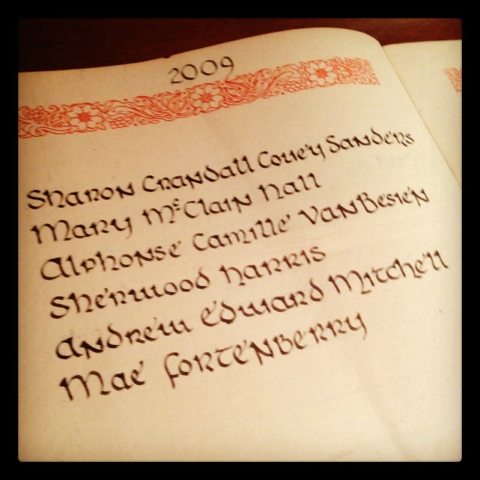 2009
Sharon Crandall Covey Sanders
Mary McClain Hall
Alphonse Camille VanBesien
Sherwood Harris
Andrew Edward Mitchell
Mae Fortenberry